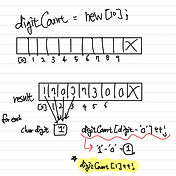 digitCount = new [10];
X
[0] 1 2 3 4 5 6 7 8 9
result 1 7 0 3 7 0 0 X
[0] 1 2 3 4 5 6
for each
char digit '1' digitCount [digit - '0'] ++;
'1' - '0' = 1
* digitCount [1] ++;